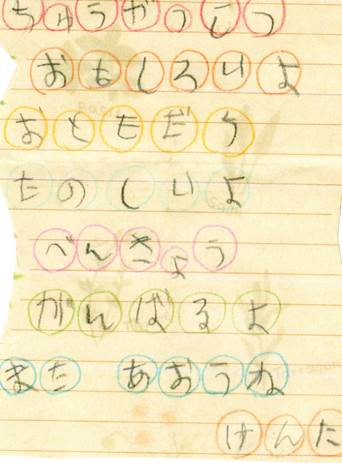 ちゅうがっこう
おもしろいよ
おともだち
たのしいよ
べんきょう
がんばるよ
また あおうね
けんた